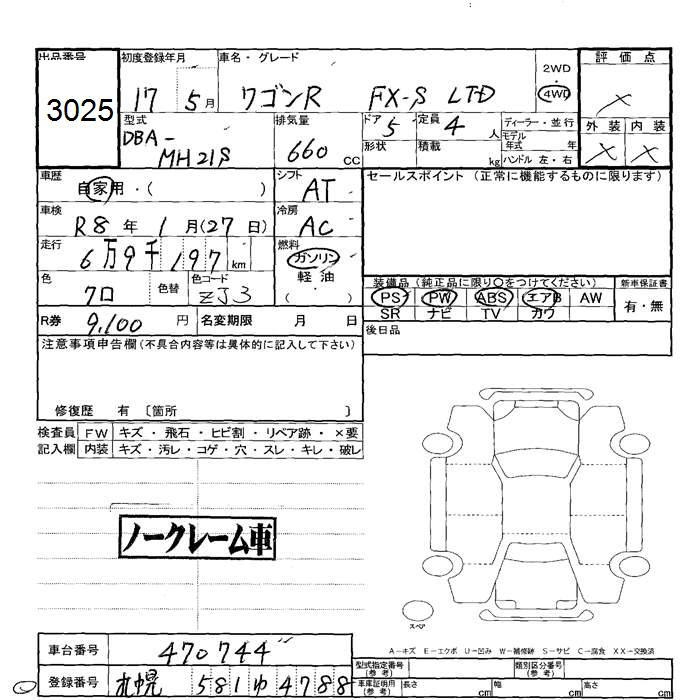 出品番号 初度登録年月 車名・グレード 2WD 評価点
3025 17 5月 ワゴンR FX-S LTD 4WD
型式 排気量 ドア 5 定員 4人 ディーラー・並行 外装 内装
DBA- モデル年式 年
MH21S 660 CC 形状 積載 kg ハンドル 左・右 × ×
車歴 自家用・( ) シフト AT セールスポイント (正常に機能するものに限ります)
車検 R8年 1月(27日) 冷房 AC
走行 6万9千197km 燃料 ガソリン
軽油
( )
色 クロ 色替 色コード ZJ3
装備品 (純正品に限り○をつけてください) 新車保証書
PS PW ABS エアB AW 有・無
SR ナビ TV カワ
R券 9,100円 名変期限 月 日 後日品
注意事項申告欄(不具合内容等は具体的に記入して下さい)
修復歴 有 〔箇所 〕
検査員 FW キズ・飛石・ヒビ割・リペア跡・×要
記入欄 内装 キズ・汚レ・コゲ・穴・スレ・キレ・破レ
ノークレーム車
スペア
A-キズ E-エクボ U-凹み W-補修跡 S-サビ C-腐食 XX-交換済
車台番号 470744 型式指定番号(参考) 類別区分番号(参考)
登録番号 札幌 581ゆ4788 車庫証明用(参考) 長さ cm 幅 cm 高さ cm